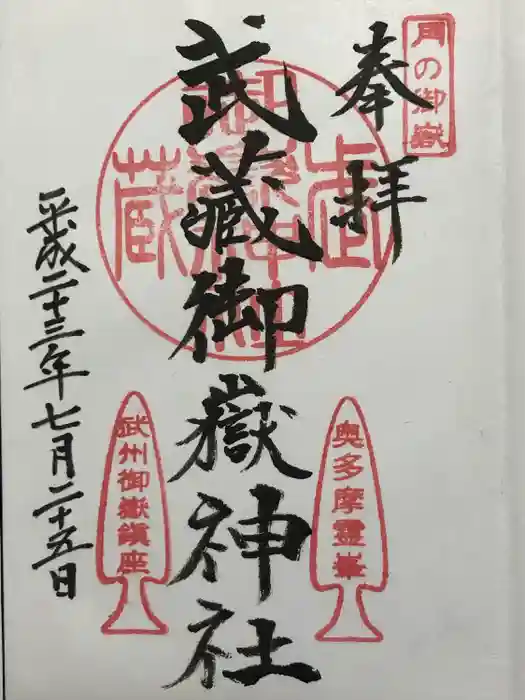 月の御嶽
奉拝
武蔵御嶽神社
奥多摩霊峯
武州御嶽鎮座
平成二十三年七月二十五日